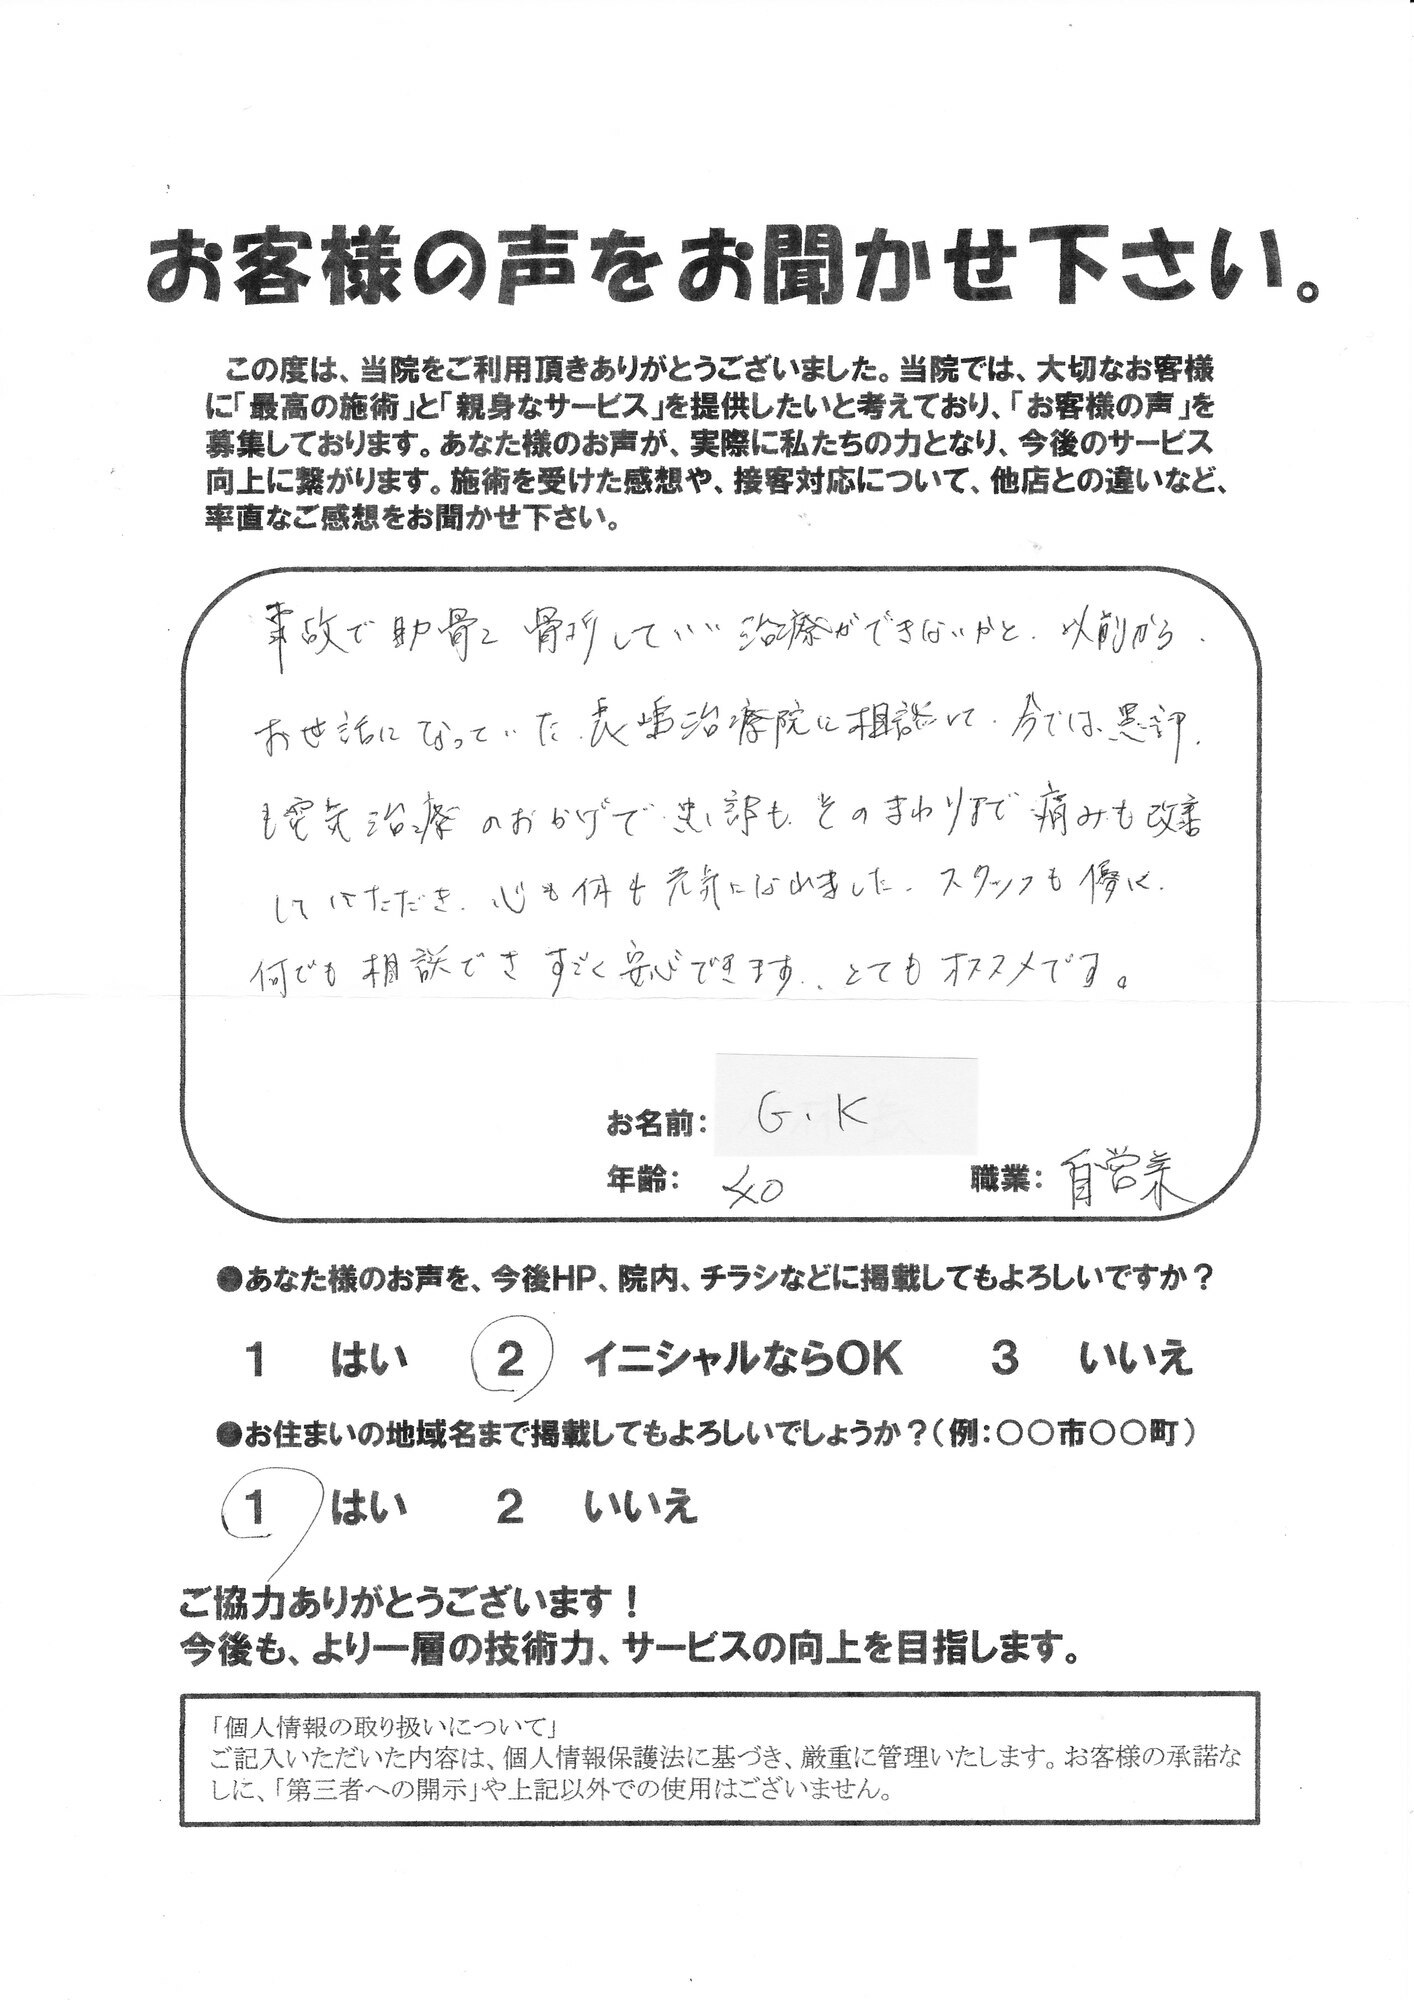 お客様の声をお聞かせ下さい。
この度は、当院をご利用頂きありがとうございました。当院では、大切なお客様
に「最高の施術」と「親身なサービス」を提供したいと考えており、「お客様の声」を
募集しております。あなた様のお声が、実際に私たちの力となり、今後のサービス
向上に繋がります。施術を受けた感想や、接客対応について、他店との違いなど、
率直なご感想をお聞かせ下さい。
事故で助骨を骨折していい治療ができないかと、以前から、
お世話になっていた、長嶋治療院に相談して、今では、患部、
も電気治療のおかげで、患部も、そのまわりまで痛みも改善
していただき、心も体も元気になれました。スタッフも優しく、
何でも相談できすごく安心できます、とてもオススメです。
お名前： G.K
年齢： 40 職業： 自営業
●あなた様のお声を、今後HP、院内、チラシなどに掲載してもよろしいですか？
1 はい 2 イニシャルならOK 3 いいえ
●お住まいの地域名まで掲載してもよろしいでしょうか？（例：○○市○○町）
1 はい 2 いいえ
ご協力ありがとうございます！
今後も、より一層の技術力、サービスの向上を目指します。
「個人情報の取り扱いについて」
ご記入いただいた内容は、個人情報保護法に基づき、厳重に管理いたします。お客様の承諾な
しに、「第三者への開示」や上記以外での使用はございません。